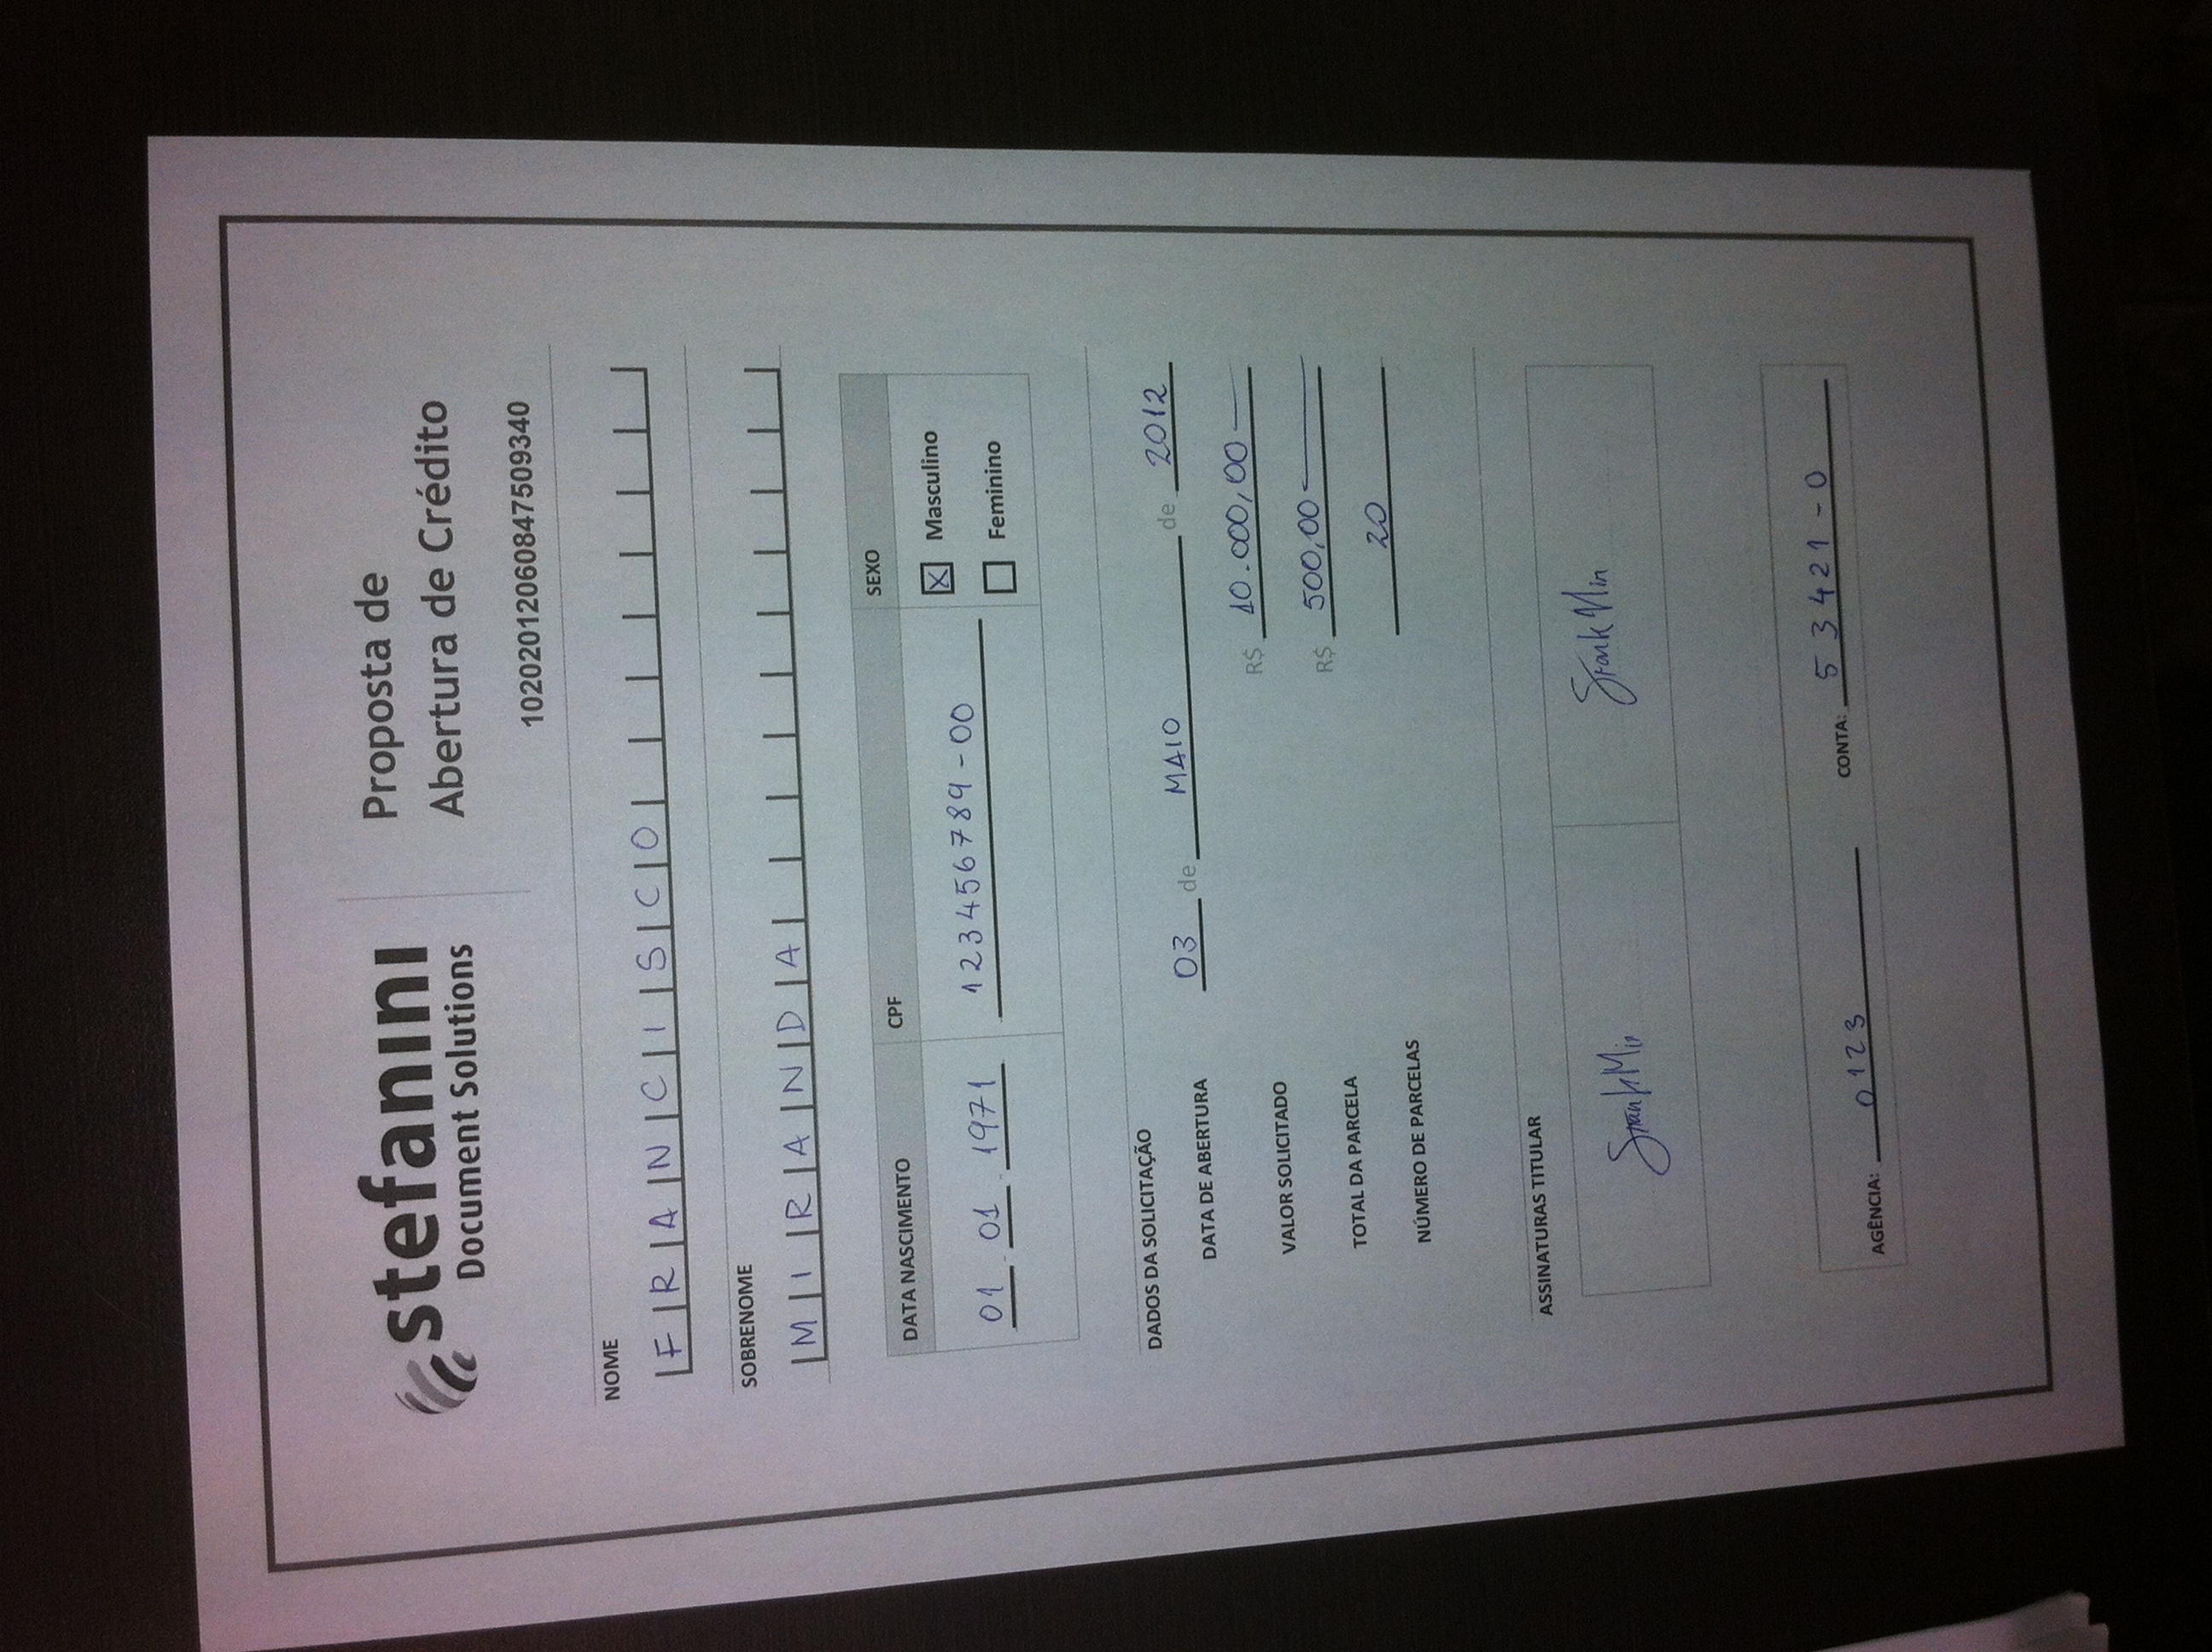 stefanini
Document Solutions
Proposta de
Abertura de Crédito
10202012060847509340
NOME
FRANCISCO
SOBRENOME
MIRANDA
DATA NASCIMENTO CPF SEXO
01 . 01 . 1971 123456789-00 X Masculino
Feminino
DADOS DA SOLICITAÇÃO
DATA DE ABERTURA 03 de MAIO de 2012
VALOR SOLICITADO R$ 10.000,00
TOTAL DA PARCELA R$ 500,00
NÚMERO DE PARCELAS 20
ASSINATURAS TITULAR
AGÊNCIA: 0123 CONTA: 53421-0